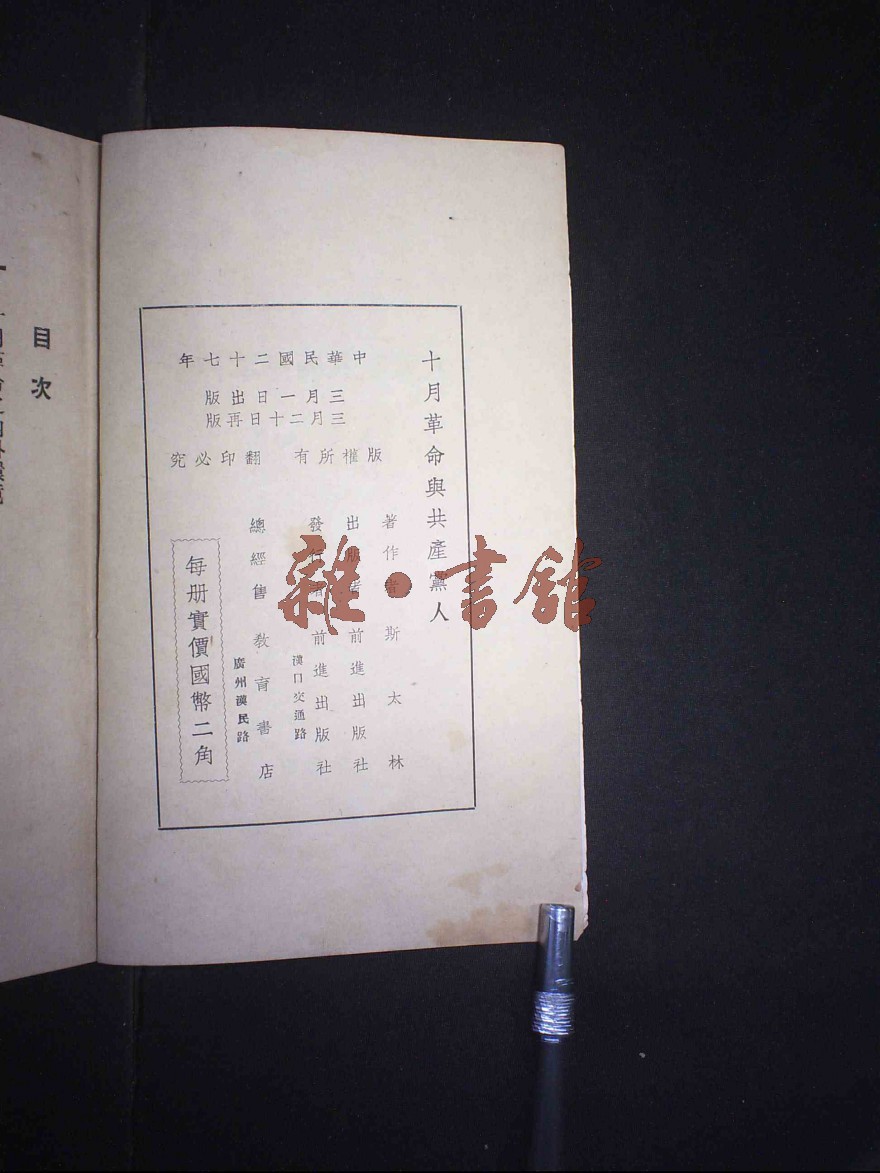 十月革命與共產黨人
中華民國二十七年
三月一日出版
三月二十日再版
版權所有 翻印必究
著作者 斯太林
出版者 前進出版社
發行者 前進出版社
漢口交通路
總經售 教育書店
廣州漢民路
每册實價國幣二角
目次
雜·書館